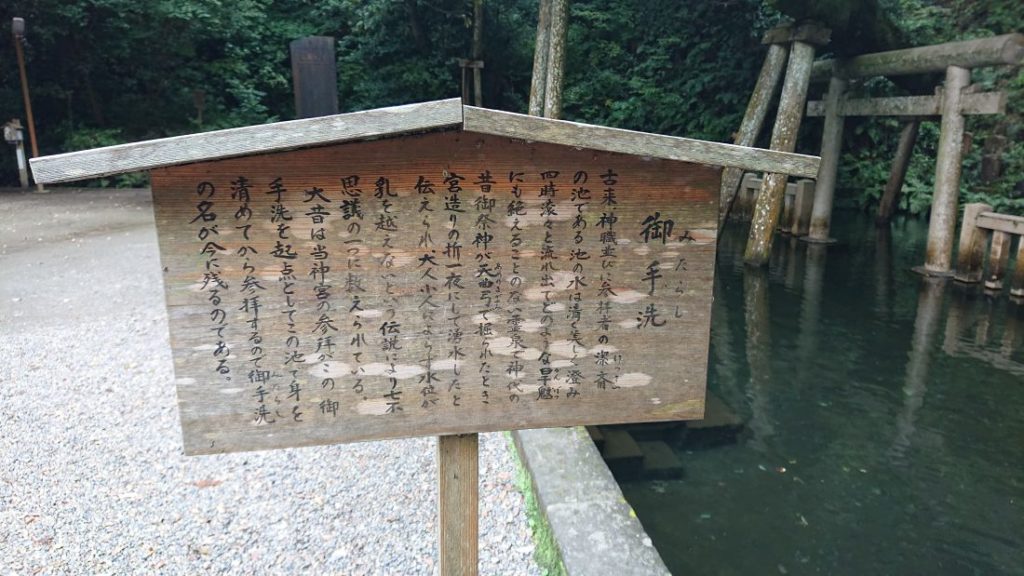 御手洗
みたらし
古来神職並びに参拝者の潔斎
けっさい
の池である池の水は清く美しく澄み
四時滾々と流れ出てどのような旱魃
かんばつ
にも絶えることのない霊泉で神代の
昔御祭神が天曲弓で掘られたとき
宮造りの折一夜にして湧水したと
伝えられ大人小人によらず水位が
乳を越えないという伝説により七不
思議の一に数えられている。
大昔は当神宮の参拝がこの御
手洗を起点としてこの池で身を
清めてから参拝するので御手洗
みたらし
の名が今に残るのである。